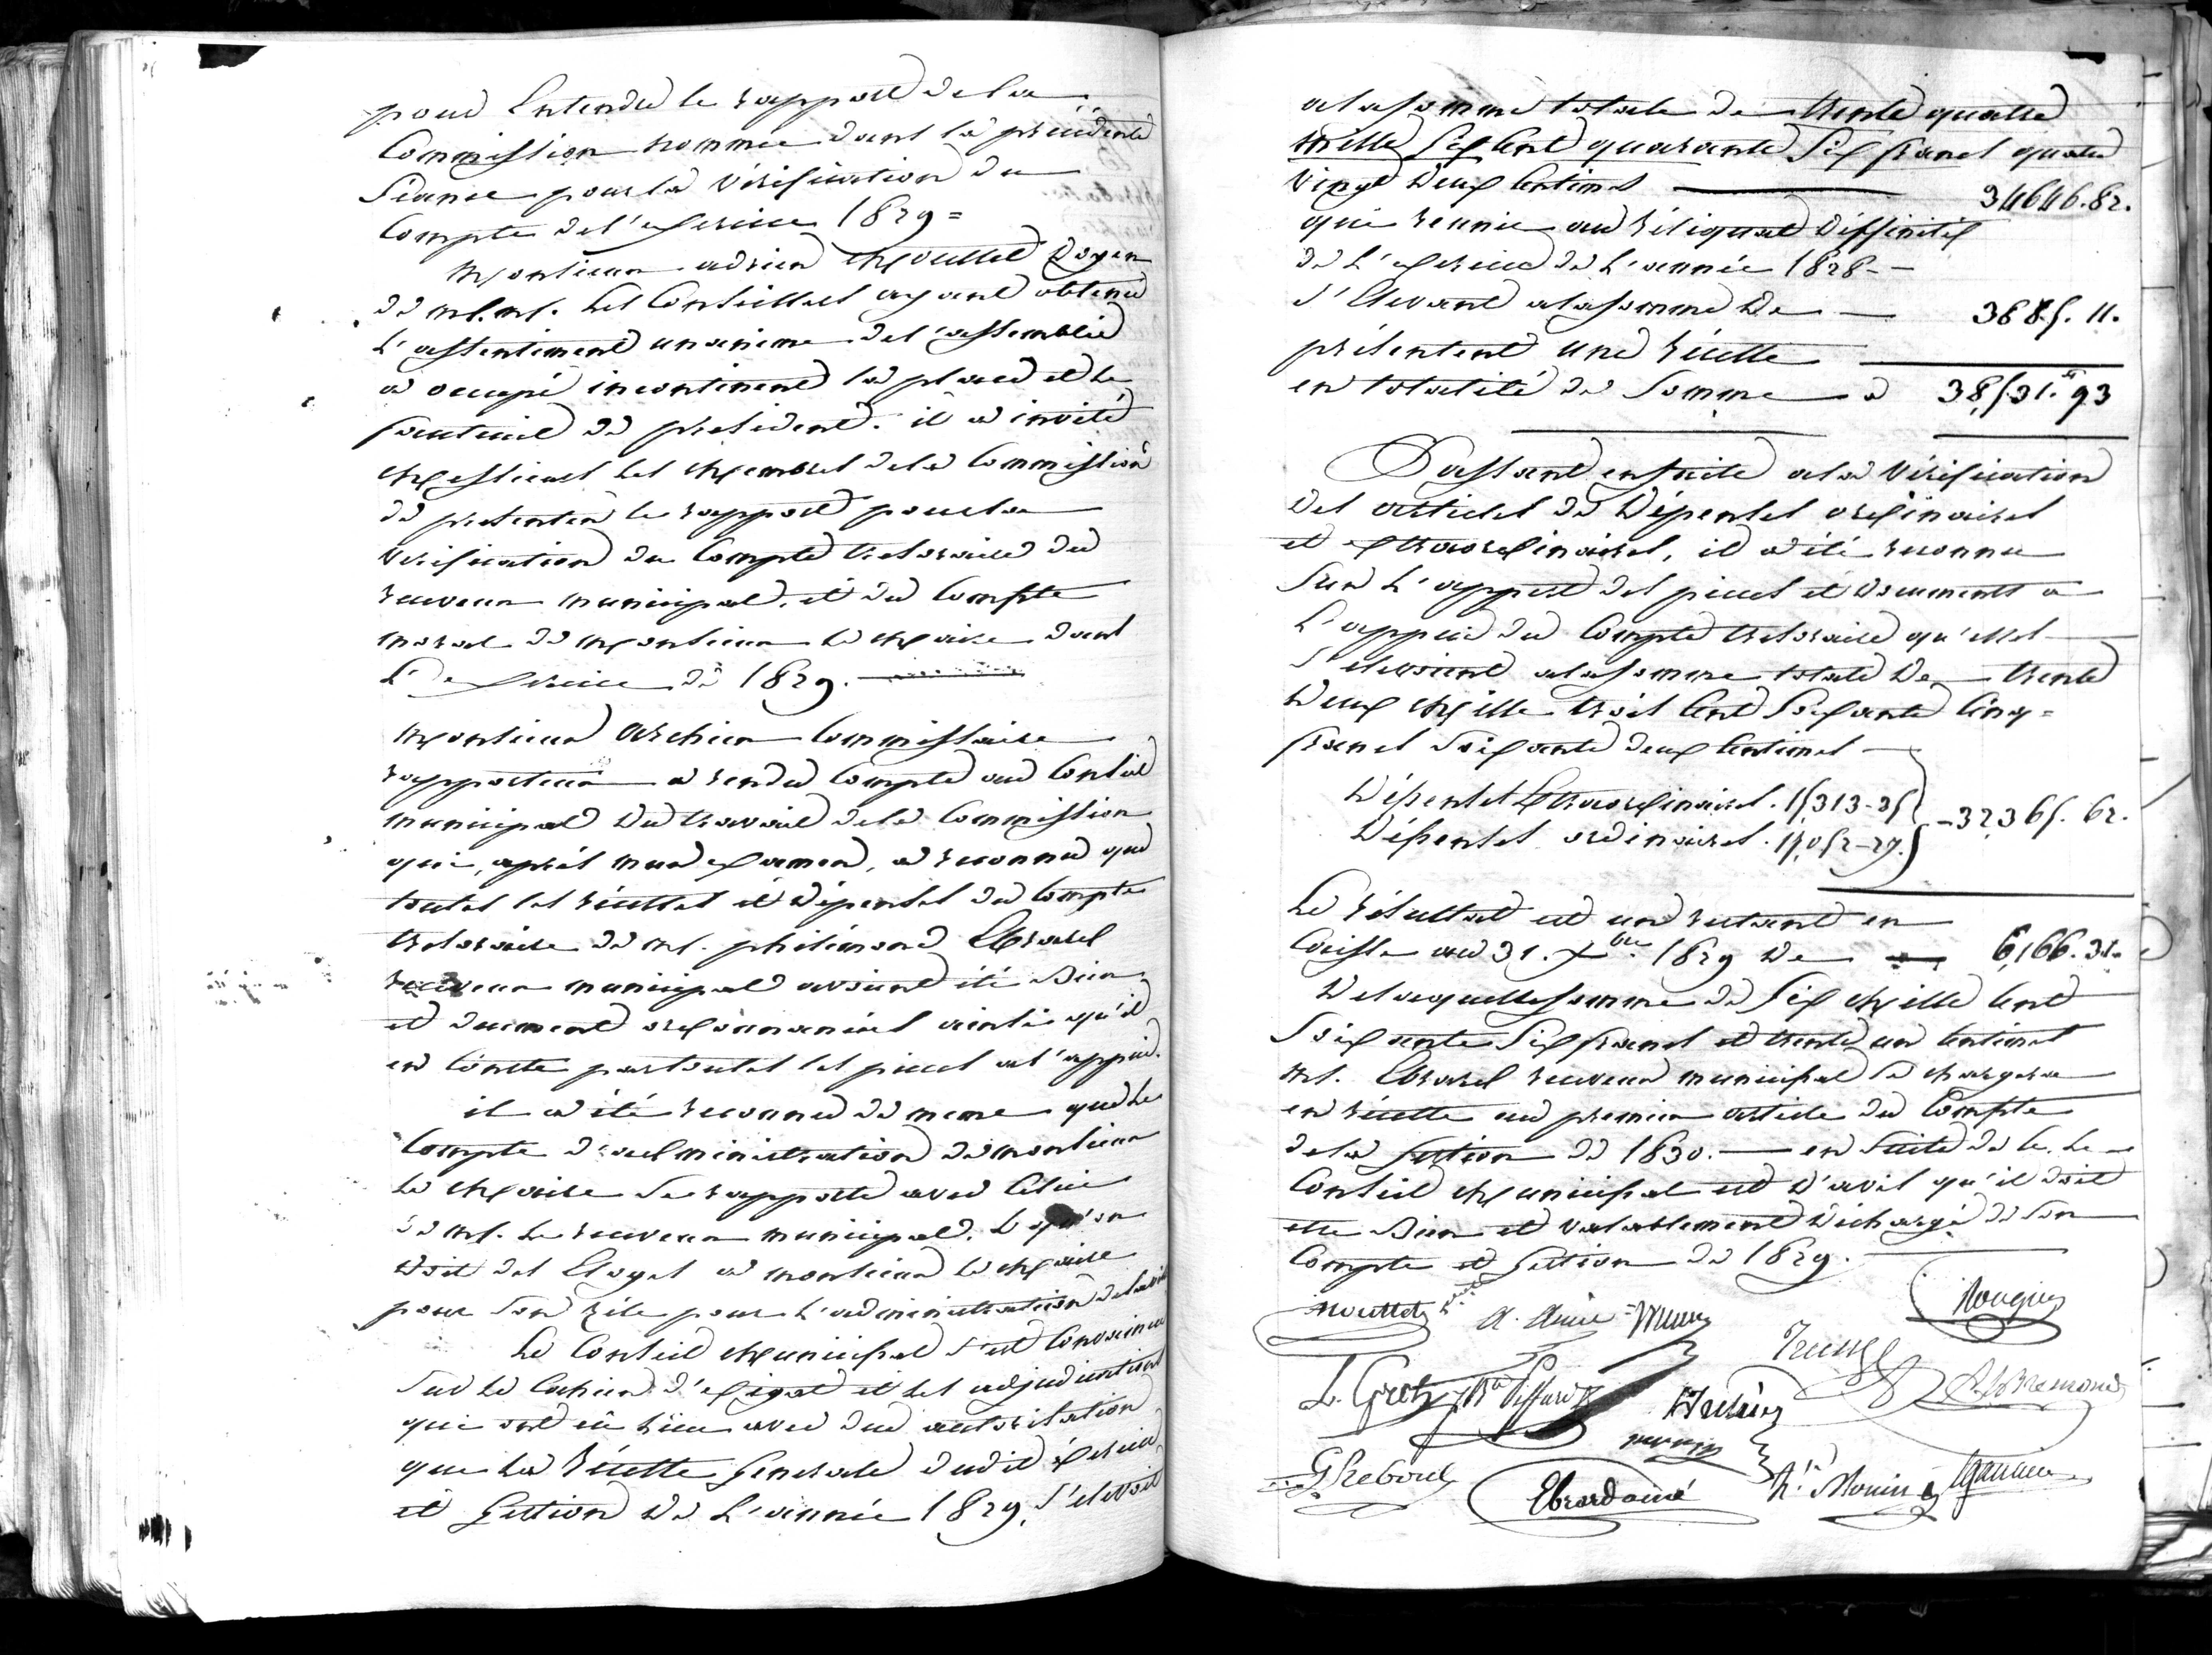 pour Entendre le rapport de la
Commission nommée dans la précédente
Séance pour la Vérification du
Compte de l'exercice 1829 =
Monsieur adrien Mouttet Doyen
de M.M. les Conseillers ayant obtenu
L'assentiment unanime de l'assemblée
a occupé incontinent la place et le
fauteuil de président. il a invité
Messieurs les Membres de la Commission
de presenter le rapport pour la
Verification du Compte tresoraire du
receveur municipal, et du Compte
moral de Monsieur le Maire dans
L'exercice de 1829.
Monsieur Archier Commissaire
rapporteur a rendu Compte au Conseil
municipal du travail de la Commission
qui, après mur examen, a reconnu que
toutes les récettes et dépenses du Compte
tresoraire de M. philémond Ebrard
receveur municipal avoient été bien
et duement ordonnancées ainsi qu'il
en Conste par toutes les pieces a l'appui.
il a été reconnu de meme que le
Compte d'administration de monsieur
le Maire se rapporte avec Celui
de M. le receveur municipal, & qu'on
doit des Eloges a monsieur le Maire
pour son zèle pour l'administration de la ville
Le Conseil Municipal s'est Convaincu
sur le Cahier d'exigat et les adjudications
qui ont eu lieu avec due autorisation
que la Récette Generale dudit éxercice
et Gestion de L'année 1829, s'elevoit
a la somme totale de trente quatre
mille six Cent quarante six francs quatre
Vingt deux Centimes 34646.82.
qui reunie au réliquat diffinitif
de L'exercice de L'année 1828 -
s'Elevant a la somme de 3885. 11.
présentent une récette
en totalité de somme a 38,531.fr 93
Passant ensuite a la Vérification
des articles de Dépenses ordinaires
et extraordinaires, il a été reconnu
sur L'apport des pieces et documents a
L'appui du Compte tresoraire qu'elles
s'elevoient a la somme totale de trente
deux Mille trois Cent soixante Cinq =
francs soixante deux Centimes
Dépenses Extraordinaires. 15,313-35
Dépenses ordinaires. 17,052-27. } - 32,365. 62.
Le résultat est un restant en
Caisse au 31. Xbre 1829 de 6,166. 31.
De laquelle somme de six Mille Cent
soixante six francs et trente un Centimes
M. Ebrard receveur municipal se chargera
en récette au premier article du Compte
de la Gestion de 1830. - en suite de Ce, Le
Conseil Municipal est d'avis qu'il doit
etre bien et valablement déchargé de son
Compte et Gestion de 1829.
Mouttet A. Aune Nougier
L. Gros Archier A. Bremond
G Reboul Ebrard ainé hri. Monin